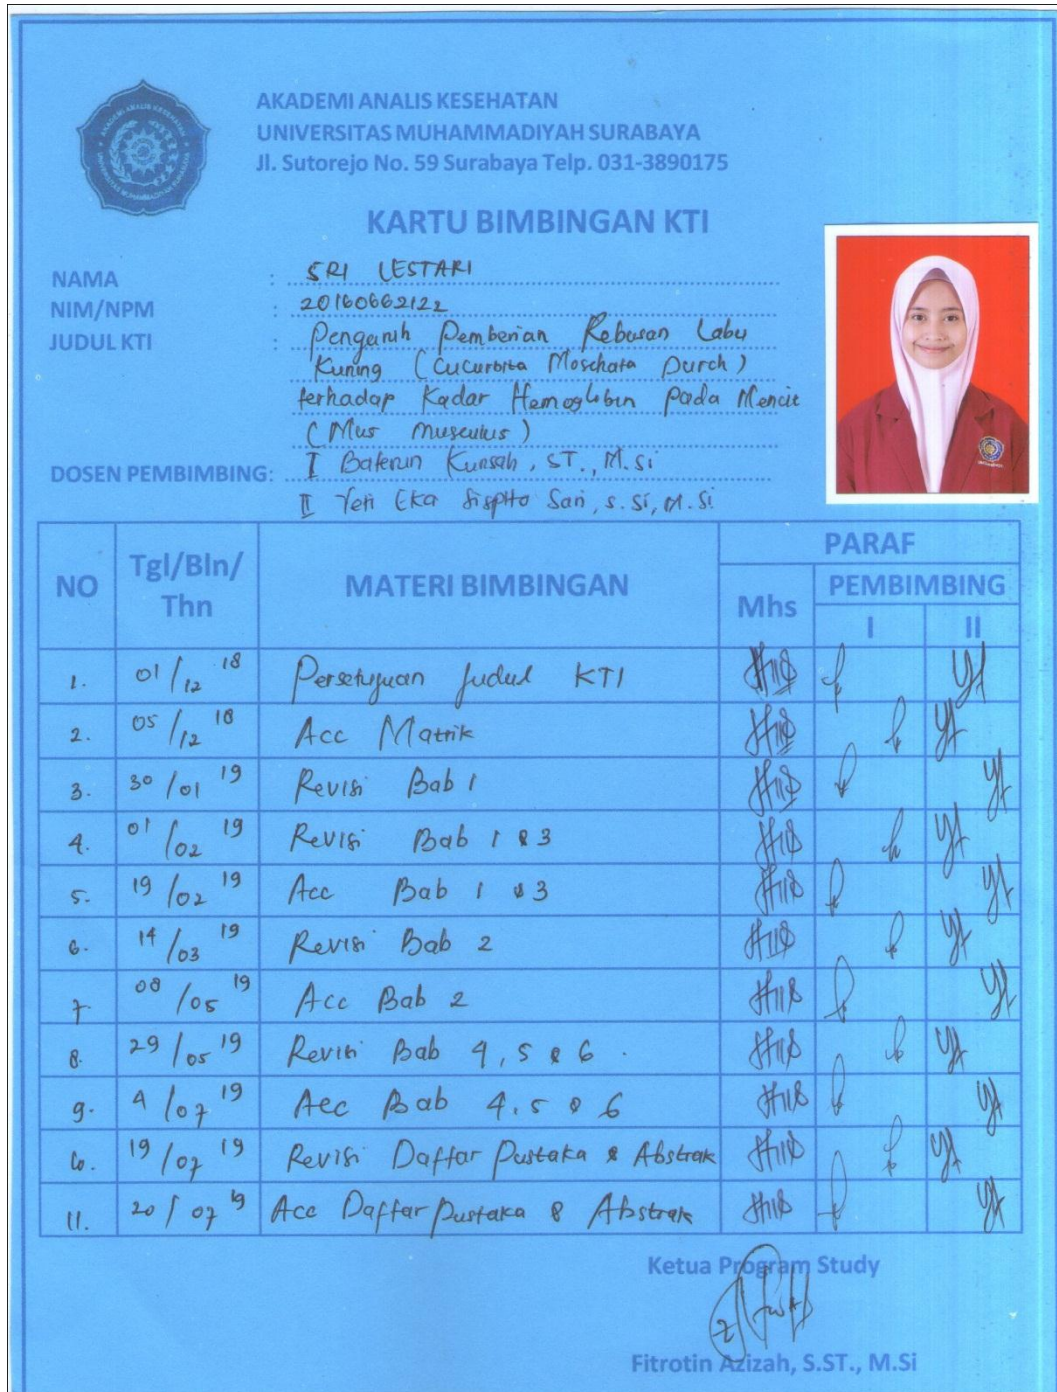 AKADEMI ANALIS KESEHATAN
UNIVERSITAS MUHAMMADIYAH SURABAYA
Jl. Sutorejo No. 59 Surabaya Telp. 031-3890175
KARTU BIMBINGAN KTI
NAMA : SRI LESTARI
NIM/NPM : 20160662122
JUDUL KTI : Pengaruh Pemberian Rebusan Labu
Kuning (Cucurbita Moschata Durch)
terhadap Kadar Hemoglobin pada Mencit
(Mus musculus)
DOSEN PEMBIMBING: I Baterun Kunsah, ST., M.Si
II Yeti Eka Sispita Sari, S.Si, M.Si
NO Tgl/Bln/Thn MATERI BIMBINGAN PARAF
Mhs PEMBIMBING
I II
1. 01/12 18 Persetujuan Judul KTI
2. 05/12 18 Acc Matrik
3. 30/01 19 Revisi Bab 1
4. 01/02 19 Revisi Bab 1 & 3
5. 19/02 19 Acc Bab 1 & 3
6. 14/03 19 Revisi Bab 2
7. 08/05 19 Acc Bab 2
8. 29/05 19 Revisi Bab 4, 5 & 6.
9. 4/07 19 Acc Bab 4, 5 & 6
10. 19/07 19 Revisi Daftar Pustaka & Abstrak
11. 20/07 19 Acc Daftar Pustaka & Abstrak
Ketua Program Study
Fitrotin Azizah, S.ST., M.Si